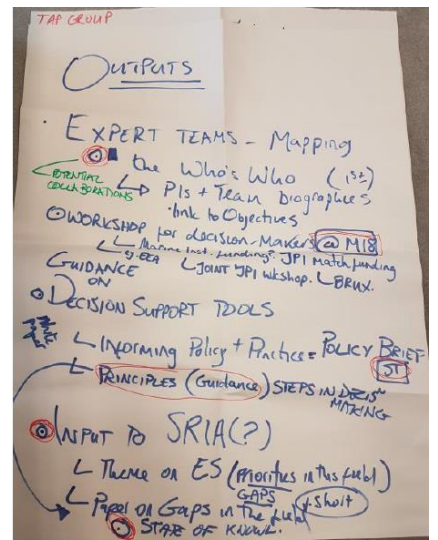 TAP GROUP
OUTPUTS
EXPERT TEAMS - Mapping
the Who's Who (1st)
POTENTIAL COLLABORATIONS
PIs + Team Biographies
link to Objectives
WORKSHOP for decision-Makers @ M18
Marine inst. funding? JPI Match funding
JOINT JPI wkshop. BRUX.
GUIDANCE ON
DECISION SUPPORT TOOLS
White paper
Informing Policy + Practice = POLICY BRIEF
PRINCIPLES (Guidance) STEPS IN DECISN
MAKING
INPUT TO SRIA(?)
Theme on ES (priorities in this field)
GAPS
Paper on Gaps in the field + Short
STATE OF KNOWL.